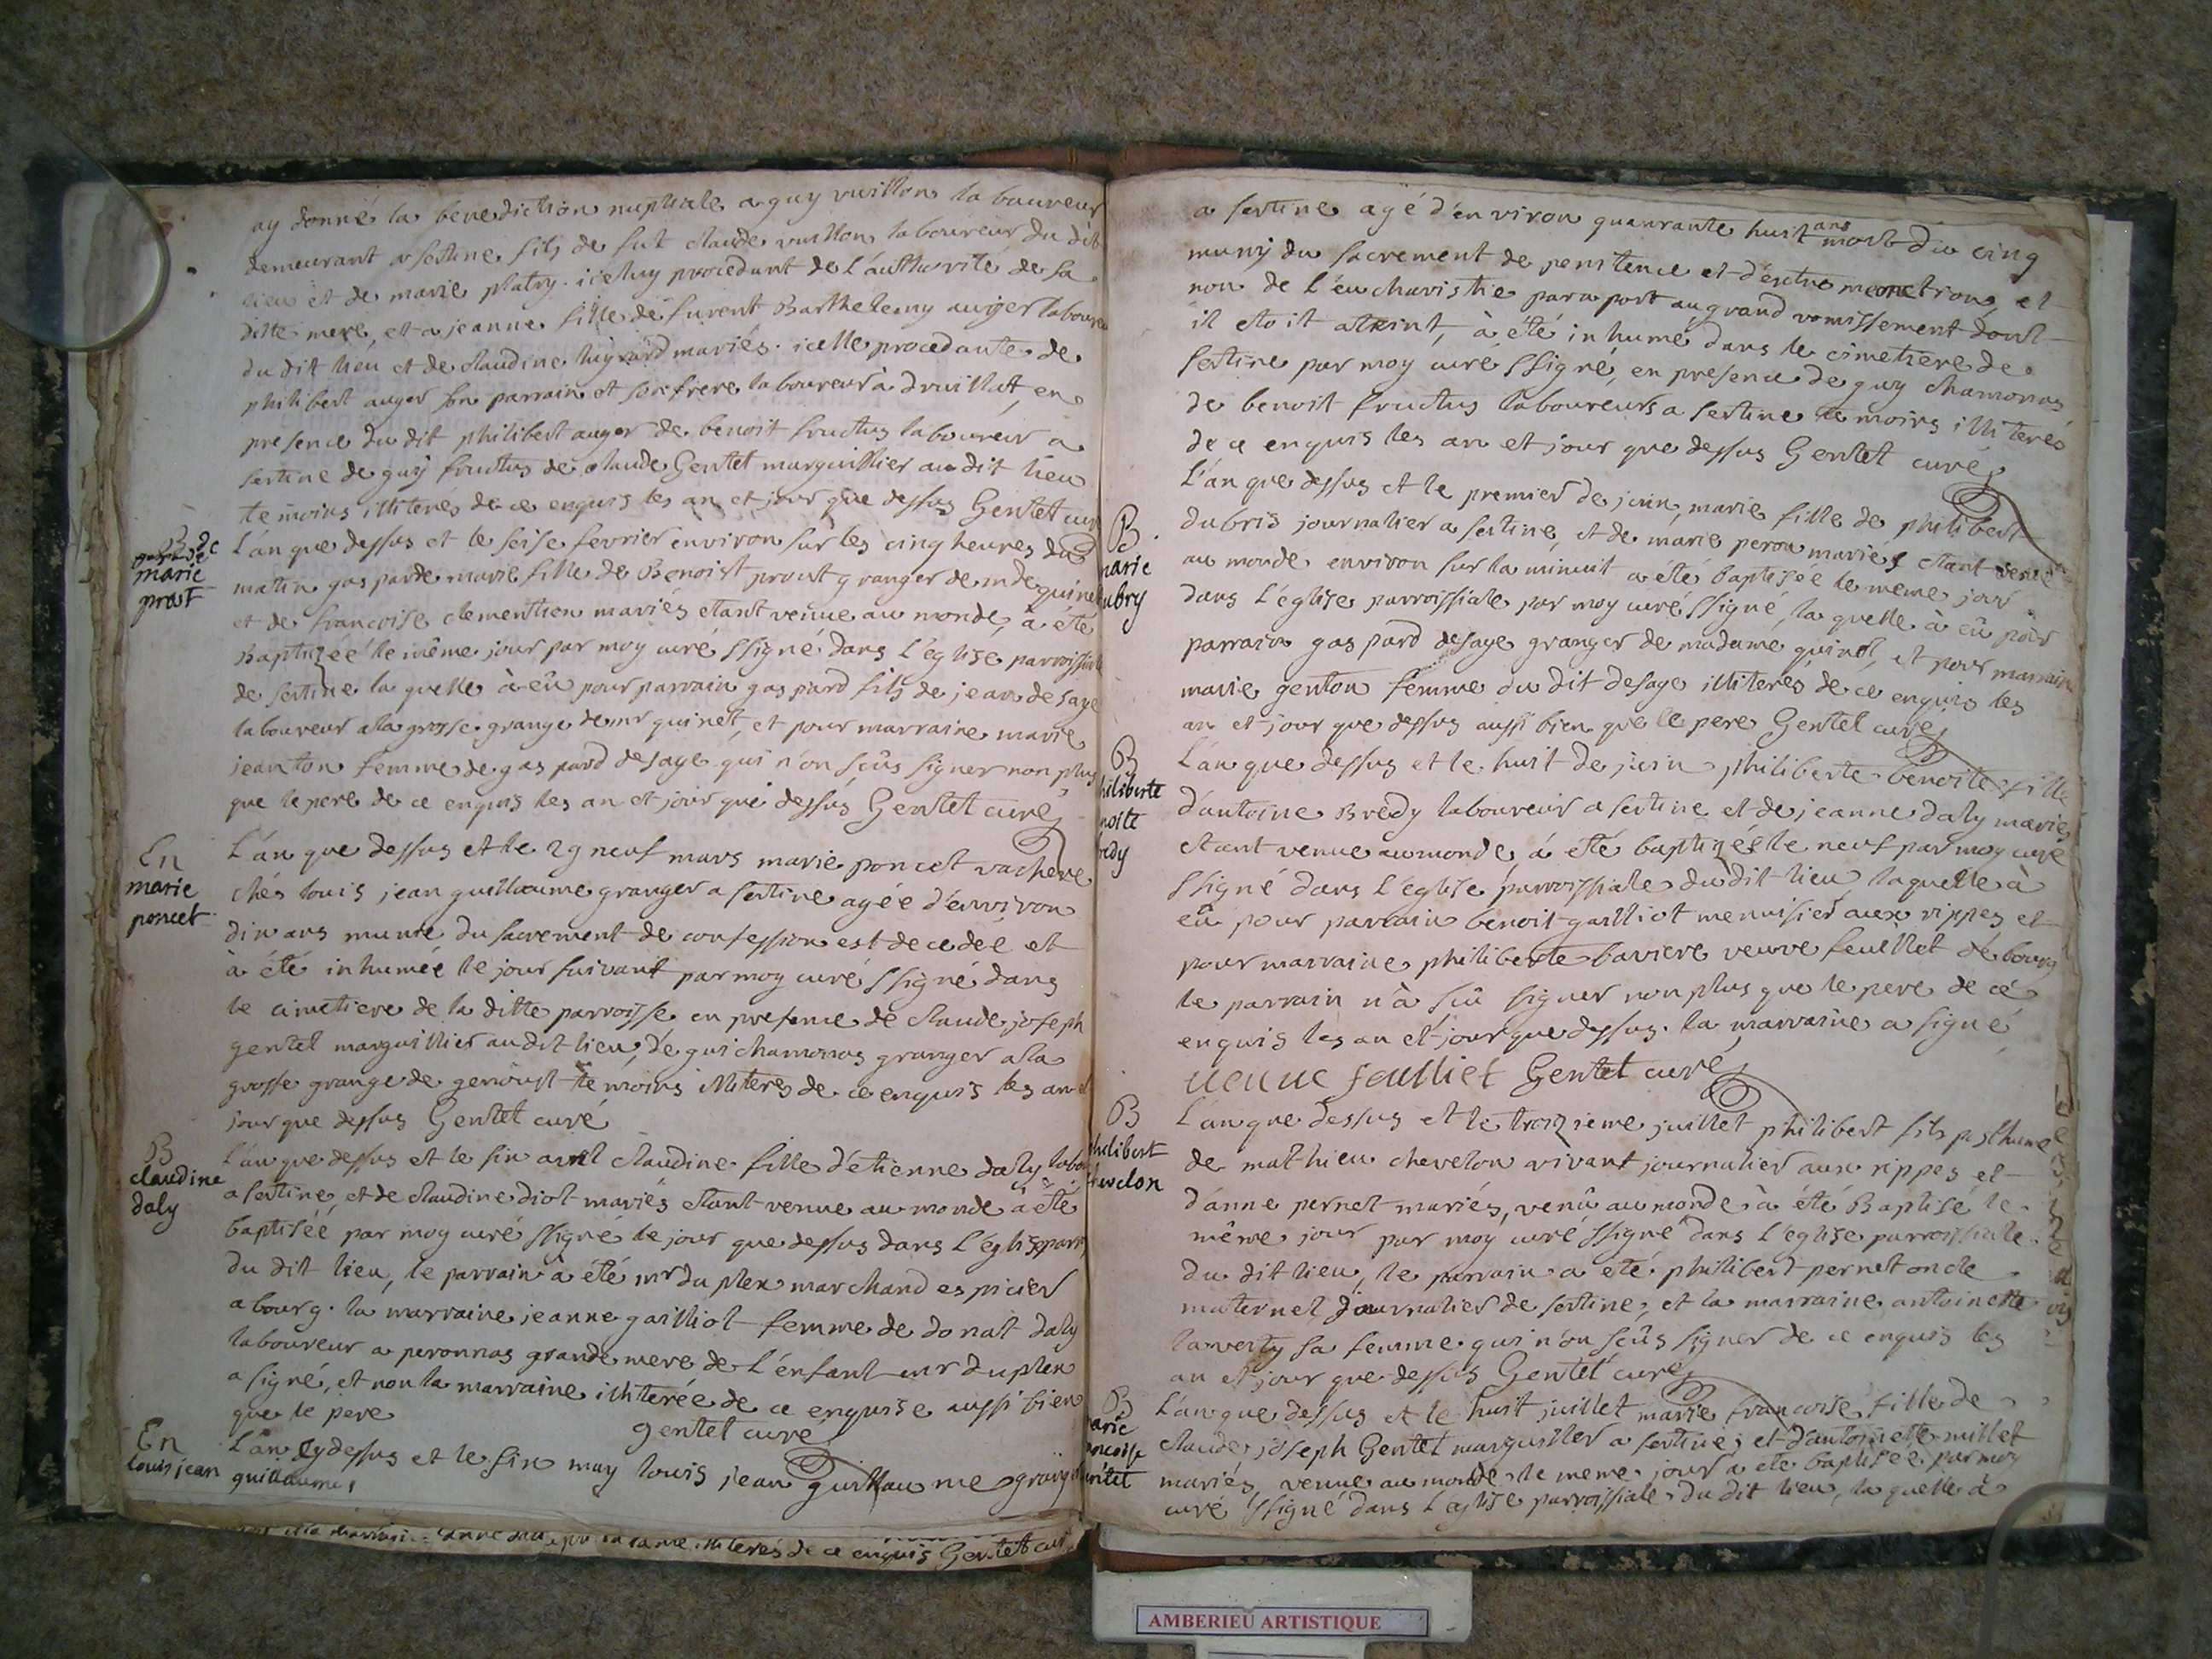 ay donné la benediction nuptiale a guy vuillon laboureur
demeurant a sertine fils de fut claude vuillon laboureur du dit
lieu et de marie platry. iceluy procedant de l'authorité de sa
ditte mere, et a jeanne fille de furent Barthelemy auger laboureur
du dit lieu et de claudine mariés. icelle procedante de
philibert auger son parrain et son frere laboureur à druillat, en
presence du dit philibert auger de benoit fructus laboureur a
sertine de guy fructus de claude Gentet marguillier au dit lieu
temoins illiterés de ce enquis les an et jour que dessus Gentet curé
B
gasparde
marie
prost
L'an que dessus et le seise fevrier environ sur les cinq heures du
matin gasparde marie fille de Benoist proust granger de mde quinet
et de francoise clementien mariés etant venue au monde, à été
Baptizéé le même jour par moy curé ssigné dans l'église parroissiale
de sertine la quelle à eû pour parrain gaspard fils de jean desage
laboureur a la grosse grange de mr quinet, et pour marraine marie
jeanton femme de gaspard desage qui n'on sçûs signer non plus
que le pere de ce enquis les an et jour que dessus Gentet curé
En
marie
poncet
L'an que dessus et le 29 neuf mars marie poncest vachere
chés louis jean guillaume granger a sertine agéé d'environ
dix ans munie du sacrement de confession est decedéé et
à été inhuméé le jour suivant par moy curé ssigné dans
le cimetiere de la ditte parroisse en presence de claude joseph
gentet marguillier au dit lieu, de gui chamonas granger a la
grosse grange de genoust temoins illiterés de ce enquis les an et
jour que dessus Gentet curé
B
claudine
daly
L'an que dessus et le six avril claudine fille d'etienne daly labou
a sertine, et de claudine diot mariés etant venue au monde à été
baptiséé par moy curé ssigné le jour que dessus dans l'église parr
du dit lieu, le parrain à été mr duplex marchand espicier
a bourg. la marraine jeanne gailliot femme de donat daly
laboureur a peronnas grande mere de l'enfant mr duplex
a signé, et non la marraine illiterée de ce enquise aussi bien
que le pere gentet curé
En
louis jean
guillaume
L'an cy dessus et le six may louis jean guillaume granger
et la marraine ... illiterés de ce enquis Gentet curé
a sertine agé d'environ quanrante huit ans mort du cinq
muny du sacrement de penitence et d'extreme onction, et
non de l'euchavistie paraport au grand vomissement dont
il etoit atteint, à été inhumé dans le cimetiere de
sertine par moy curé ssigné, en presence de guy chamonas
de benoit fructus laboureurs a sertine temoins illiterés
de ce enquis les an et jour que dessus Gentet curé
B
marie
dubry
L'an que dessus et le premier de juin, marie fille de philibert
dubris journalier a sertine, et de marie peron mariés etant venue
au monde environ sur la minuit a été baptisée le meme jour
dans l'église parroissiale par moy curé ssigné, la quelle à eû pour
parrain gaspard desage granger de madame quinet, et pour marraine
marie genton femme du dit desage illiterés de ce enquis les
an et jour que dessus aussi bien que le pere Gentet curé
B
philiberte
benoite
bredy
L'an que dessus et le huit de juin philiberte benoite fille
d'antoine Bredy laboureur a sertine et de jeanne daly mariés
etant venue au monde, á été baptizéé le neuf par moy curé
ssigné dans l'eglise parroissiale du dit lieu, laquelle à
eû pour parrain benoit gailliot menuisier aux rippes et
pour marraine philiberte baviere veuve feuillet de bourg
le parrain n'à sçû signer non plus que le pere de ce
enquis les an et jour que dessus. la marraine a signé
ueuue feulliet Gentet curé
B
philibert
chevelon
L'an que dessus et le troizieme juillet philibert fils posthume
de mathieu chevelon vivant journalier aux rippes et
d'anne pernet mariés, venû au monde à été Baptisé le
même jour par moy curé ssigné dans l'eglise parroissiale
du dit lieu, le parrain a eté philibert pernet oncle
maternel journalier de sertine, et la marraine antoinette
laverty sa femme qui n'on sçûs signer de ce enquis les
an et jour que dessus Gentet curé
B
marie
francoise
gentet
L'an que dessus et le huit juillet marie francoise fille de
claude joseph Gentet marguillier a sertine, et d'antoinette millet
mariés, venue au monde le meme jour a eté baptisée par moy
curé ssigné dans l'eglise parroissiale du dit lieu, la quelle à
AMBERIEU ARTISTIQUE